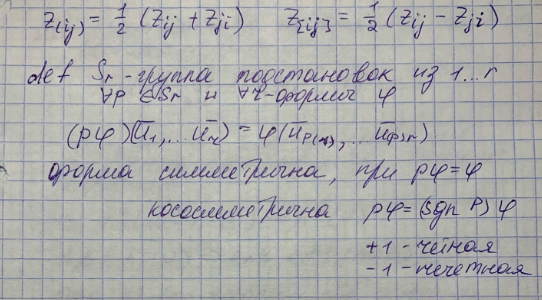 Z(ij) = 1/2 (Zij + Zji) Z[ij] = 1/2 (Zij - Zji)
def Sr - группа подстановок из 1...r
∀p ∈ Sr и ∀ r-формы φ
(pφ)(ū1, ... ūr) = φ(ūp(1), ... ūp(r))
форма симметрична, при pφ = φ
кососимметрична pφ = (sgn p) φ
+1 - чётная
-1 - нечетная